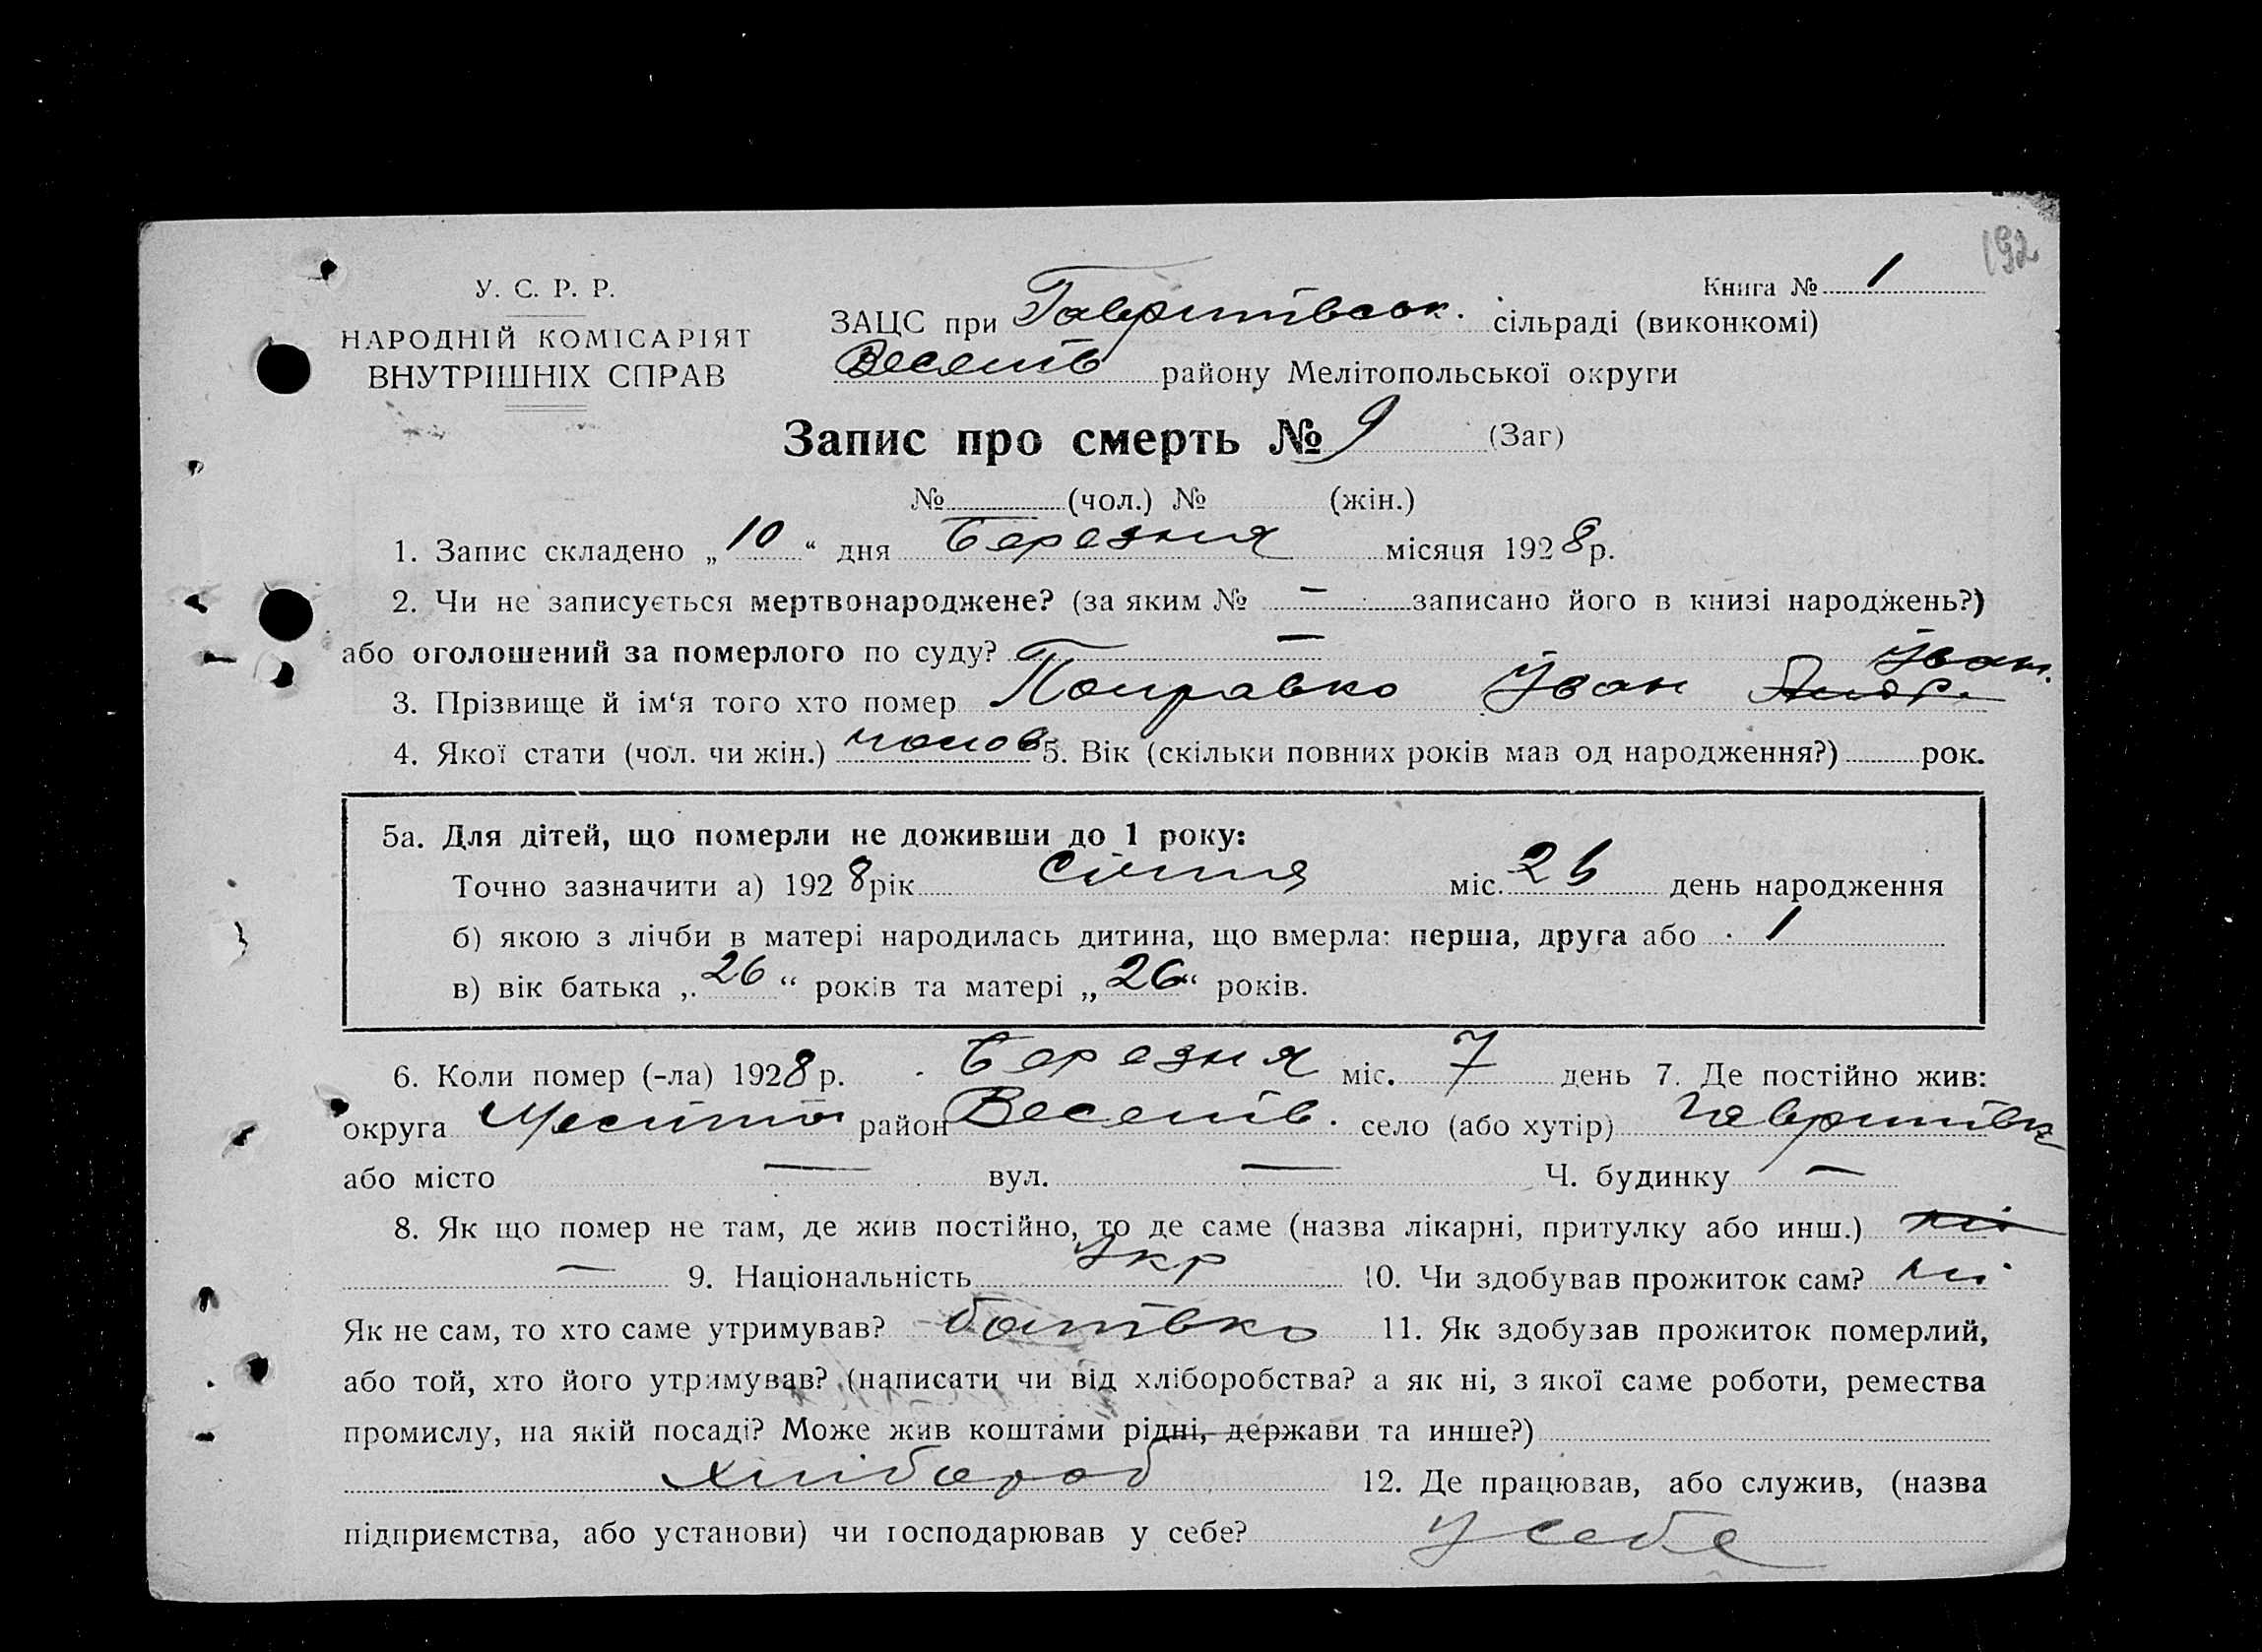 192
У. С. Р. Р.
НАРОДНІЙ КОМІСАРІЯТ
ВНУТРІШНІХ СПРАВ
Книга № 1
ЗАЦС при Гаврилівськ. сільраді (виконкомі)
Веселів району Мелітопольської округи
Запис про смерть № 9 (Заг)
№ (чол.) № (жін.)
1. Запис складено „10“ дня Березня місяця 1928 р.
2. Чи не записується мертвонароджене? (за яким № — записано його в книзі народжень?)
або оголошений за померлого по суду? —
Іван.
3. Прізвище й ім‘я того хто помер Поправко Іван Андр.
4. Якої стати (чол. чи жін.) чолов 5. Вік (скільки повних років мав од народження?) рок.
5а. Для дітей, що померли не доживши до 1 року:
Точно зазначити а) 1928 рік Січня міс. 26 день народження
б) якою з лічби в матері народилась дитина, що вмерла: перша, друга або 1
в) вік батька „26“ років та матері „26“ років.
6. Коли помер (-ла) 1928 р. Березня міс. 7 день 7. Де постійно жив:
округа Меліто район Веселів. село (або хутір) Гаврилівка
або місто — вул. — Ч. будинку —
8. Як що помер не там, де жив постійно, то де саме (назва лікарні, притулку або инш.) ні
— 9. Національність Укр 10. Чи здобував прожиток сам? ні
Як не сам, то хто саме утримував? батівко 11. Як здобував прожиток померлий,
або той, хто його утримував? (написати чи від хліборобства? а як ні, з якої саме роботи, ремества
промислу, на якій посаді? Може жив коштами рідні, держави та инше?)
хлібороб 12. Де працював, або служив, (назва
підприємства, або установи) чи господарював у себе? у себе